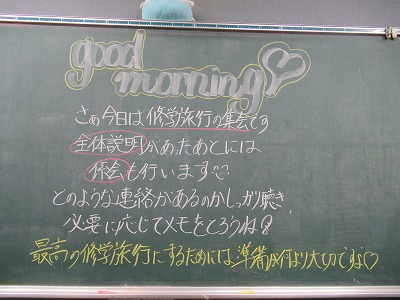 good
morning♡
さぁ今日は修学旅行の集会です
全体説明があったあとには
係会も行います
どのような連絡があるのかしっかり聴き
必要に応じてメモをとろうね!
最高の修学旅行にするためには準備が何より大切ですよ♡